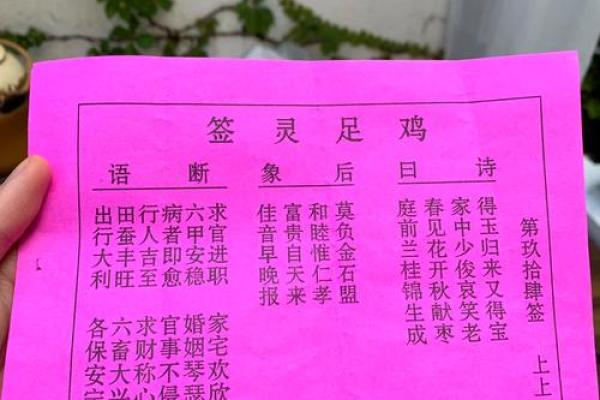 鸡足灵签
第玖拾肆签
上上
诗曰
得玉归来又得宝
家中少俊哀笑老
春见花开秋献枣
庭前兰桂锦生成
后象
莫负金石盟
和睦惟仁孝
富贵自天来
佳音早晚报
断语
求官进职
六甲安稳
病者即愈
行人吉至
田蚕丰旺
出行大利
家宅欢欣
婚姻琴瑟
官事不侵
求财称心
六畜大兴
各保安